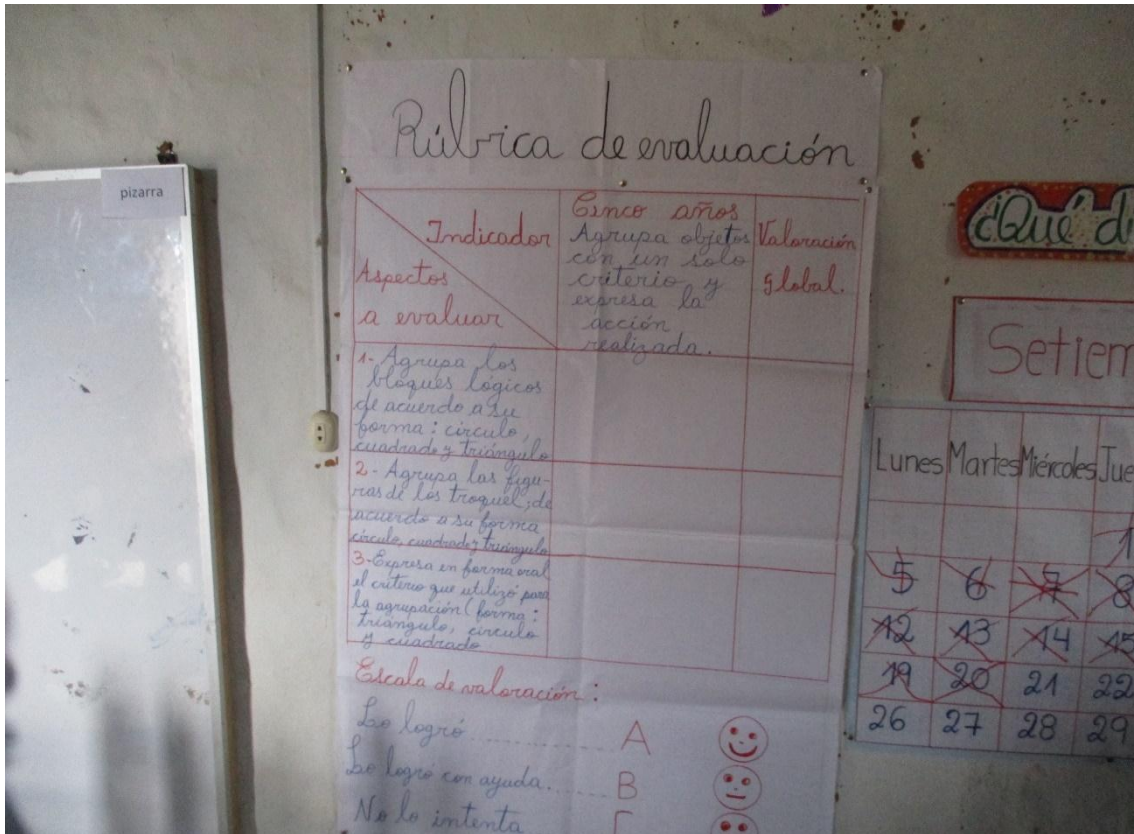 pizarra
Rúbrica de evaluación
Indicador
Aspectos
a evaluar
Cinco años
Agrupa objetos
con un solo
criterio y
expresa la
acción
realizada.
Valoración
Global.
1- Agrupa los
bloques lógicos
de acuerdo a su
forma: círculo,
cuadrado y triángulo
2- Agrupa las figu-
ras de los troquel, de
acuerdo a su forma
círculo, cuadrado y triángulo
3- Expresa en forma oral
el criterio que utilizó para
la agrupación (forma:
triángulo, círculo
y cuadrado
Escala de valoración:
Lo logró ............ A
Lo logró con ayuda. ...... B
No lo intenta
¿Qué d
Setiem
Lunes Martes Miércoles Jue
1
5 6 7 8
12 13 14 15
19 20 21 22
26 27 28 29